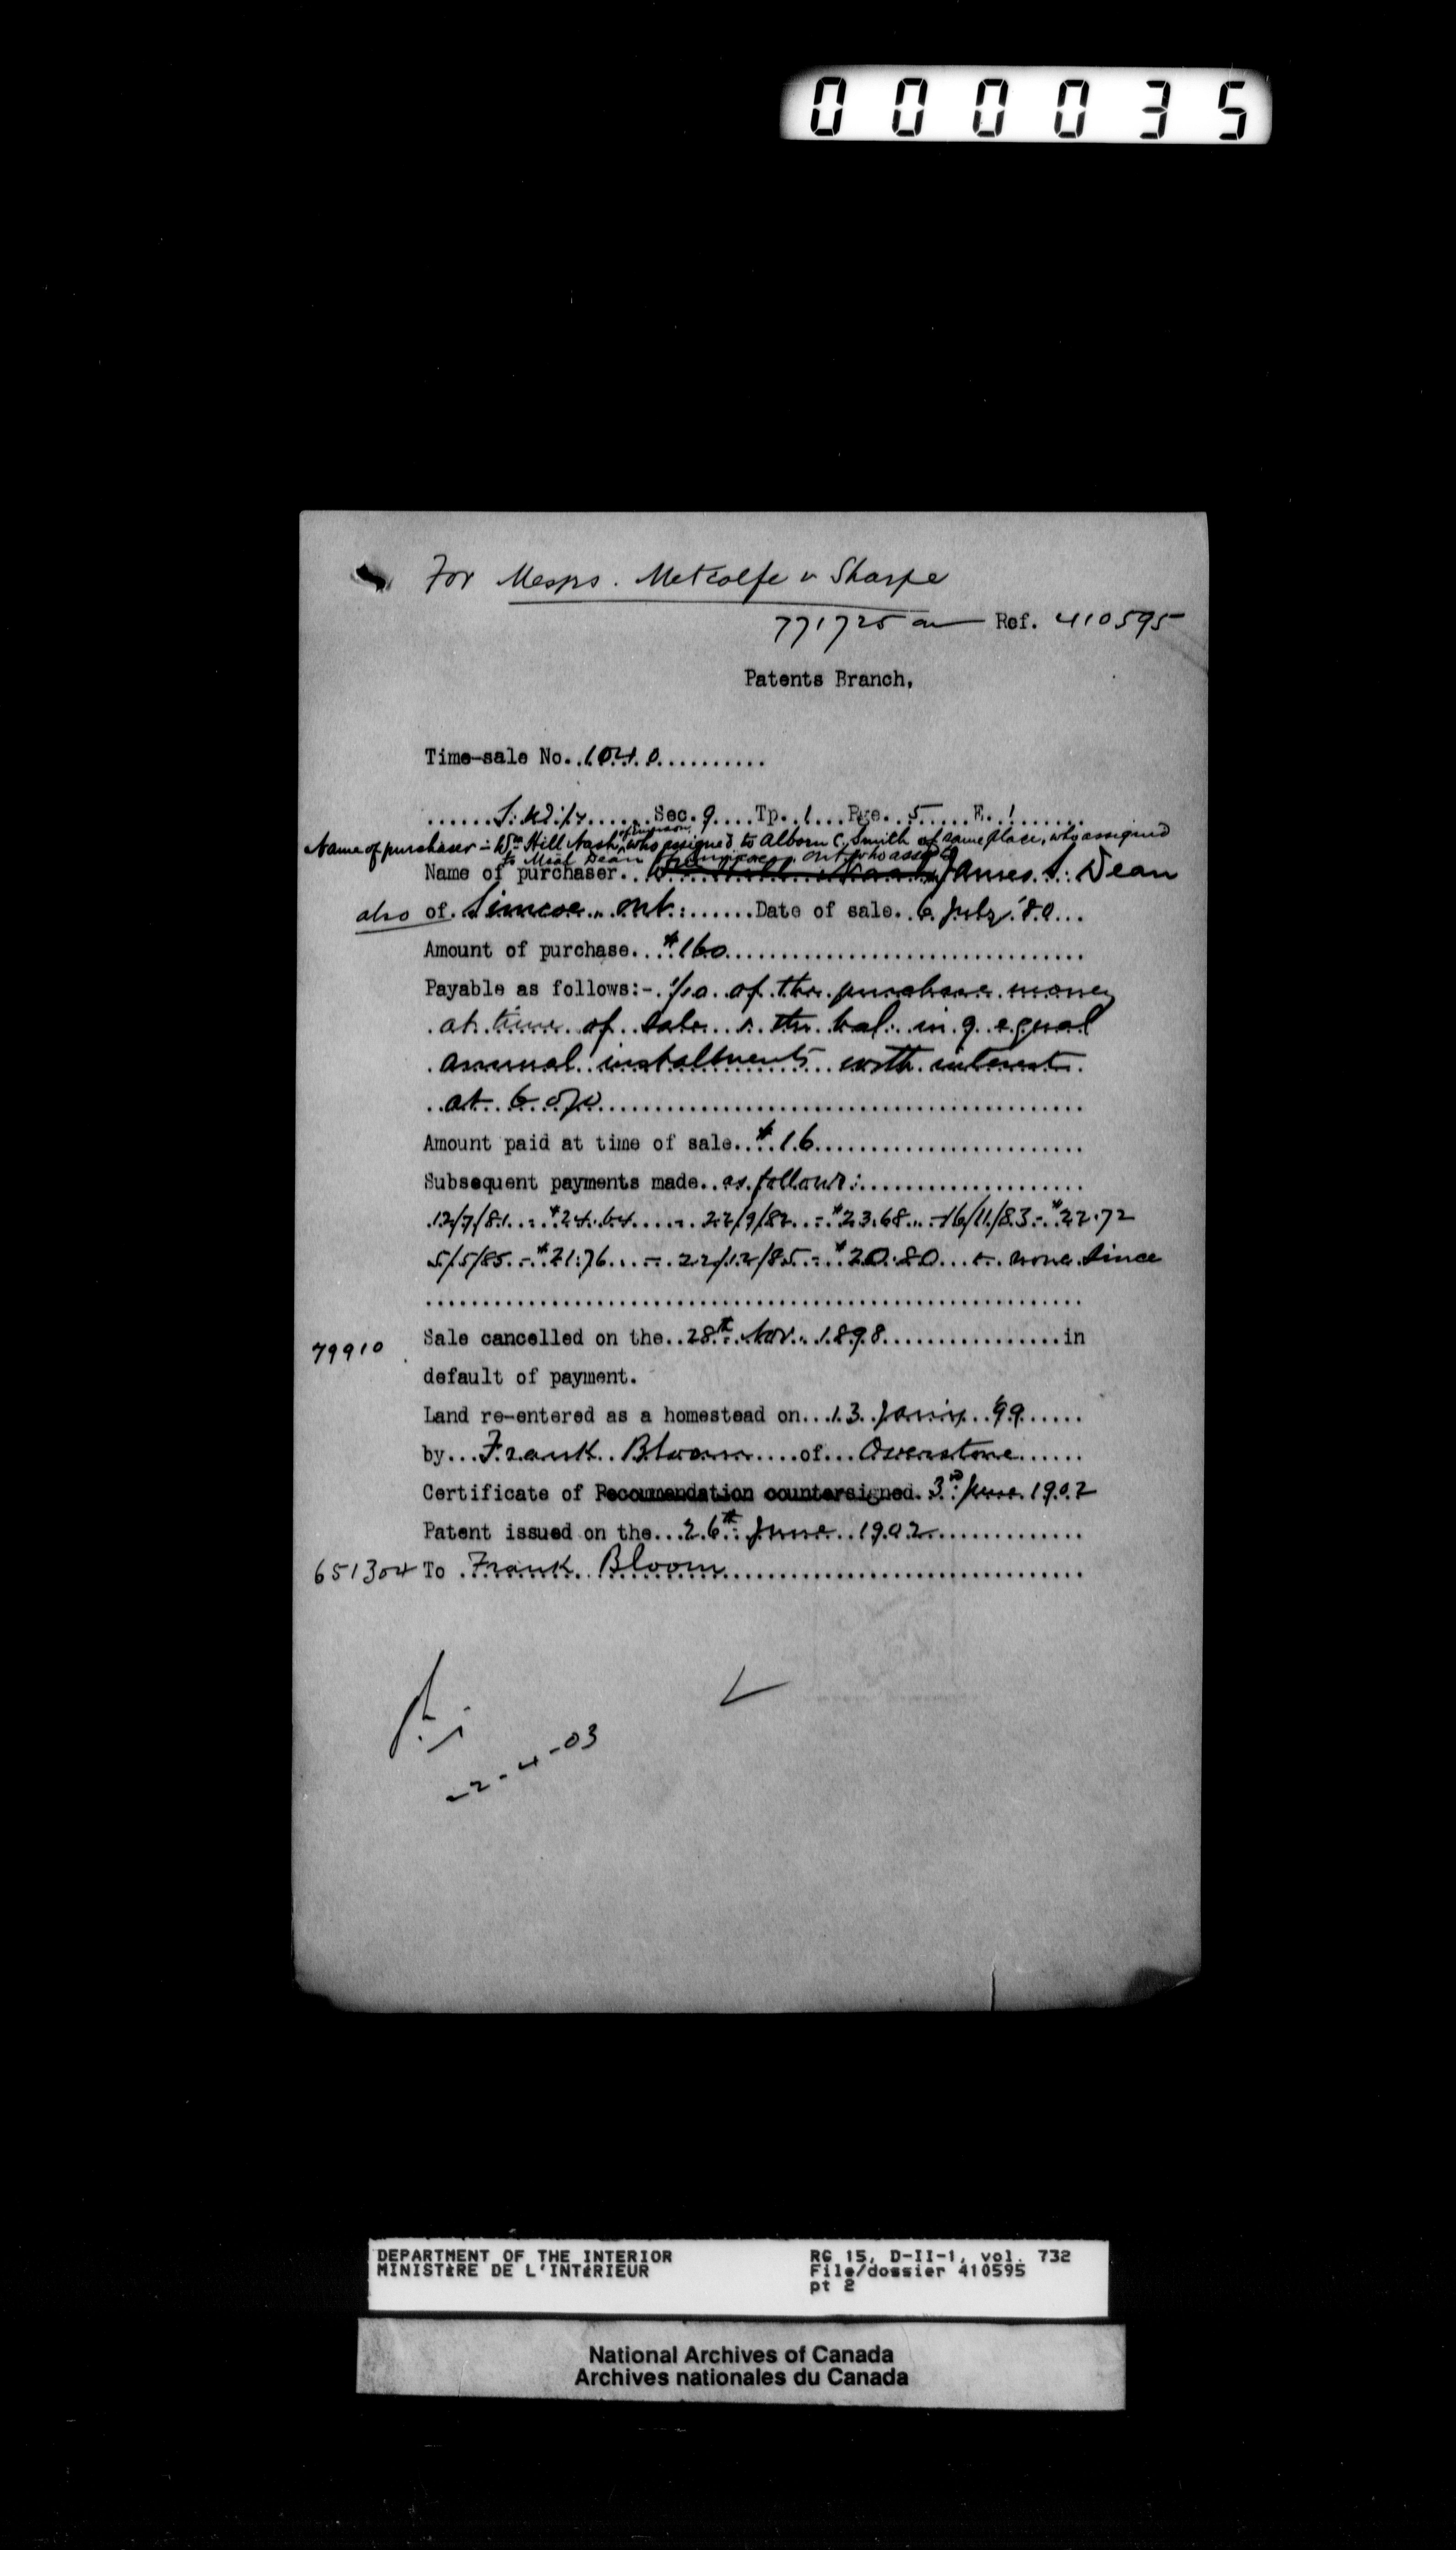 000035
For Messrs. Metcalfe & Sharpe
771725 on Ref. 410595
Patents Branch,
Time-sale No. 1040
S.W.¼ Sec. 9 Tp. 1 Rge. 5 E. 1
Name of purchaser - Wm Hill Nash, of Emerson, who assigned to Alborn C. Smith of same place, who assigned
to Dean of Simcoe, Ont. who assigned to
Name of purchaser James S. Dean
also of Simcoe Ont. Date of sale 6 July '80
Amount of purchase $160
Payable as follows:- 1/10 of the purchase money
at time of sale & the bal. in 9 equal
annual installments with interest
at 6 o/o
Amount paid at time of sale $16
Subsequent payments made as follows:
12/7/81 - $24.64 - 22/9/82 - $23.68 - 16/11/83 - $22.72
5/5/85 - $21.76 - 22/12/85 - $20.80 & none since
79910 Sale cancelled on the 28th Nov. 1898 in
default of payment.
Land re-entered as a homestead on 13 Jan'y '99
by Frank Bloom of Overstone
Certificate of Recommendation countersigned. 3rd June 1902
Patent issued on the 26th June 1902
651304 To Frank Bloom
2-4-03
DEPARTMENT OF THE INTERIOR RG 15, D-II-1, vol. 732
MINISTÈRE DE L'INTÉRIEUR File/dossier 410595
pt 2
National Archives of Canada
Archives nationales du Canada